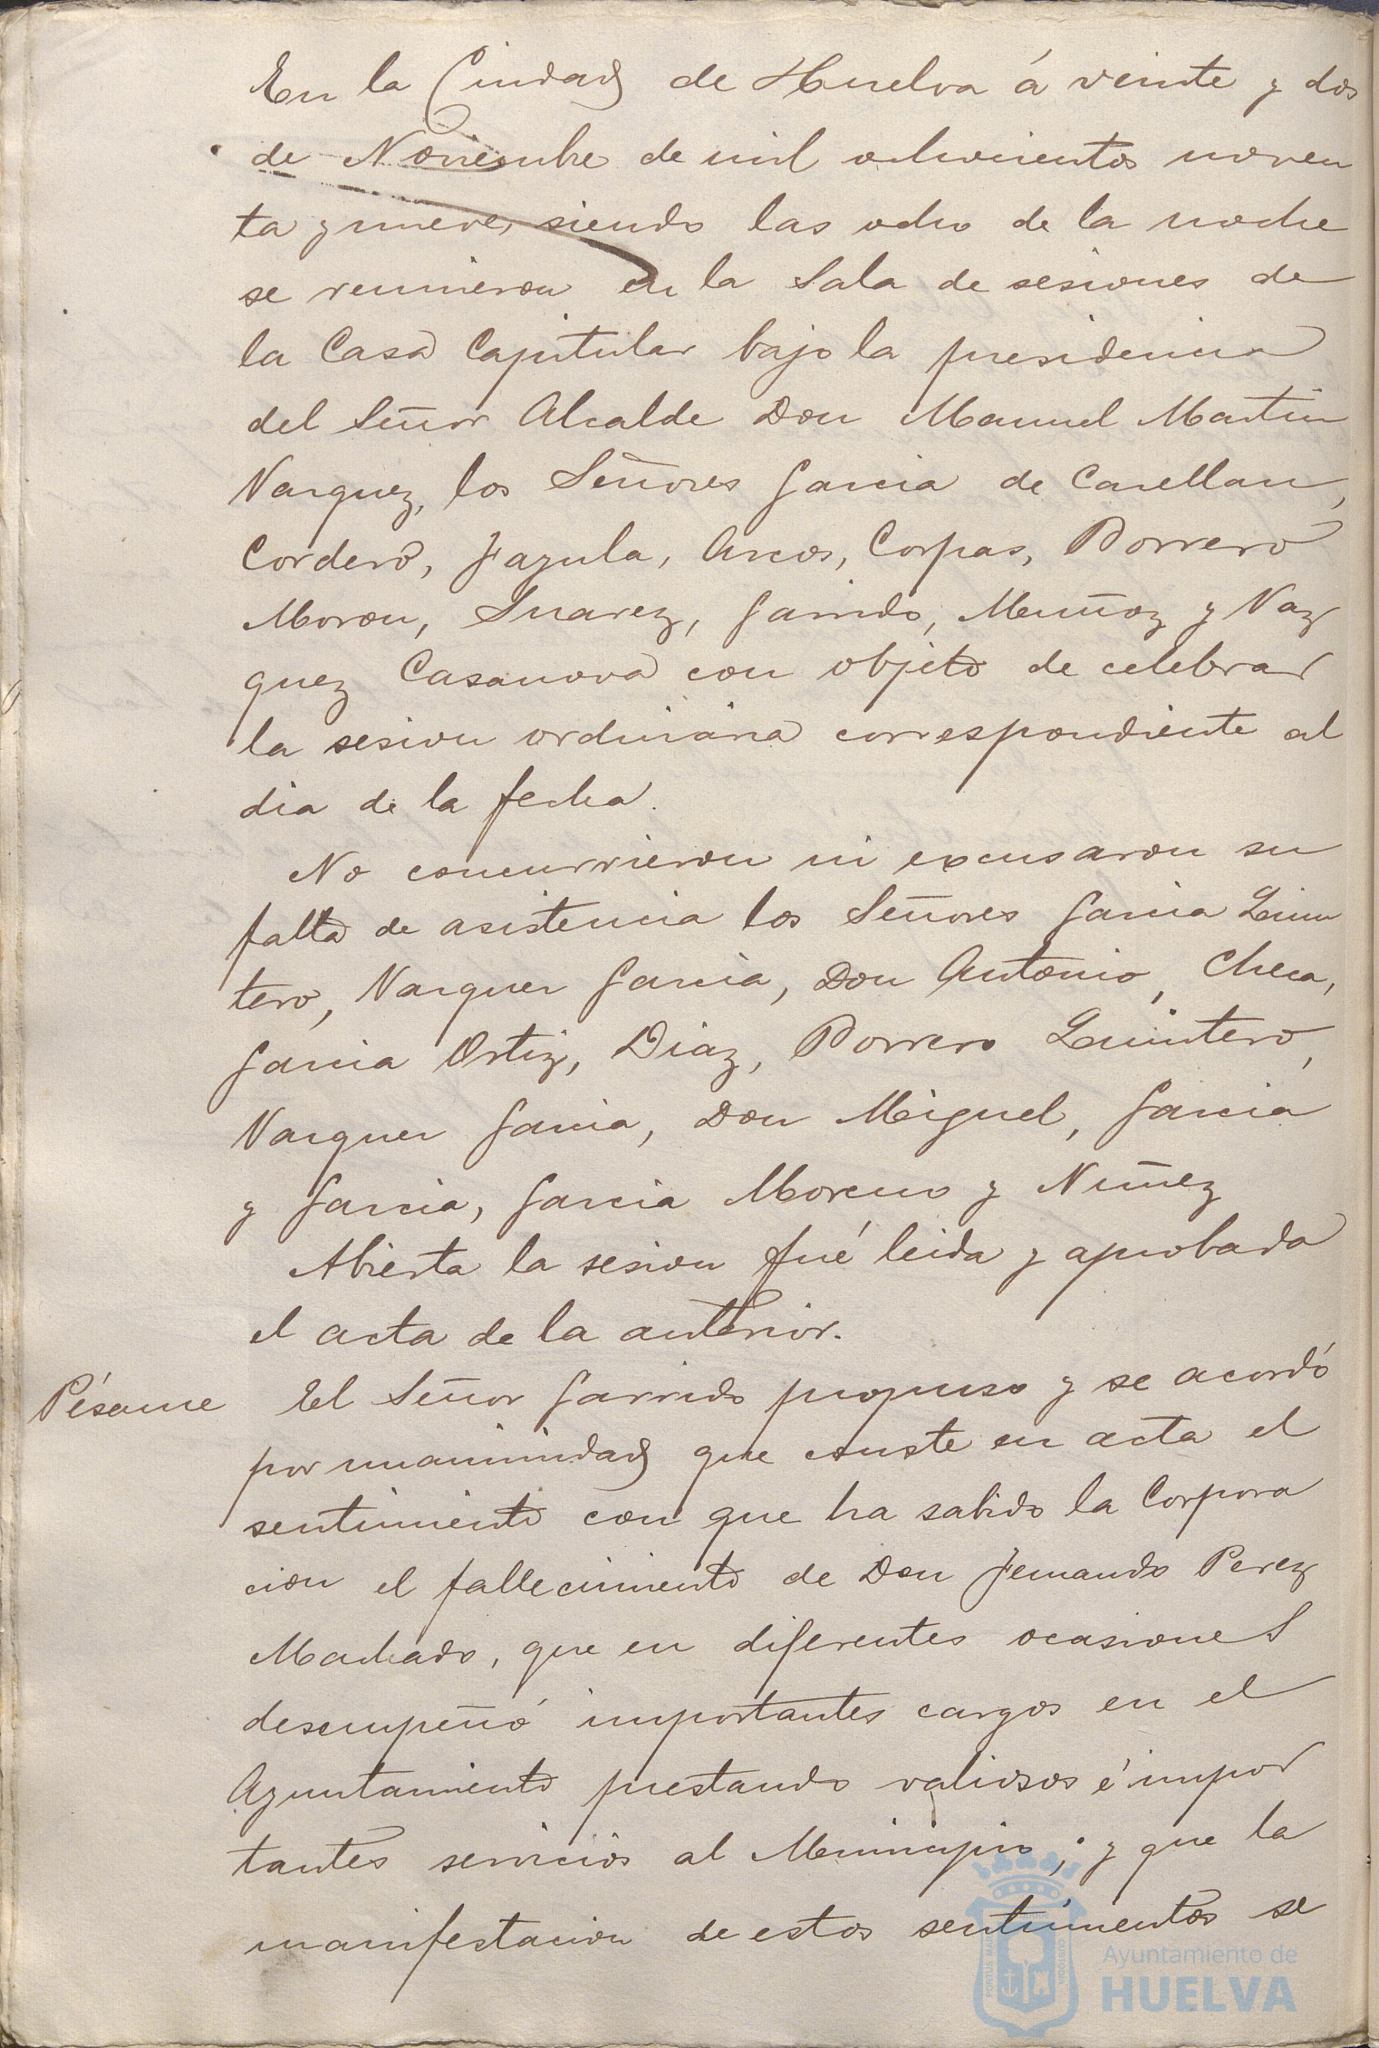 En la Ciudad de Huelva á veinte y dos
de Noviembre de mil ochocientos noven
ta y nueve, siendo las ocho de la noche
se reunieron en la Sala de sesiones de
la Casa Capitular bajo la presidencia
del Señor Alcalde Don Manuel Martin
Vazquez, los Señores Garcia de Carellan,
Cordero, Jazula, Arcos, Corpas, Borrero
Moron, Suarez, Garrido, Muñoz y Vaz
quez Casanova con objeto de celebrar
la sesion ordinaria correspondiente al
dia de la fecha.
No concurrieron ni excusaron su
falta de asistencia los Señores Garcia Quin
tero, Vazquez Garcia, Don Antonio, Checa,
Garcia Ortiz, Diaz, Borrero Quintero,
Vazquez Garcia, Don Miguel, Garcia
y Garcia, Garcia Moreno y Nuñez
Abierta la sesion fué leida y aprobada
el acta de la anterior.
Pésame El Señor Garrido propuso y se acordó
por unanimidad que conste en acta el
sentimiento con que ha sabido la Corpora
cion el fallecimiento de Don Fernando Perez
Machado, que en diferentes ocasiones
desempeñó importantes cargos en el
Ayuntamiento prestando valiosos é impor
tantes servicios al Municipio; y que la
manifestacion de estos sentimientos se
Ayuntamiento de
HUELVA